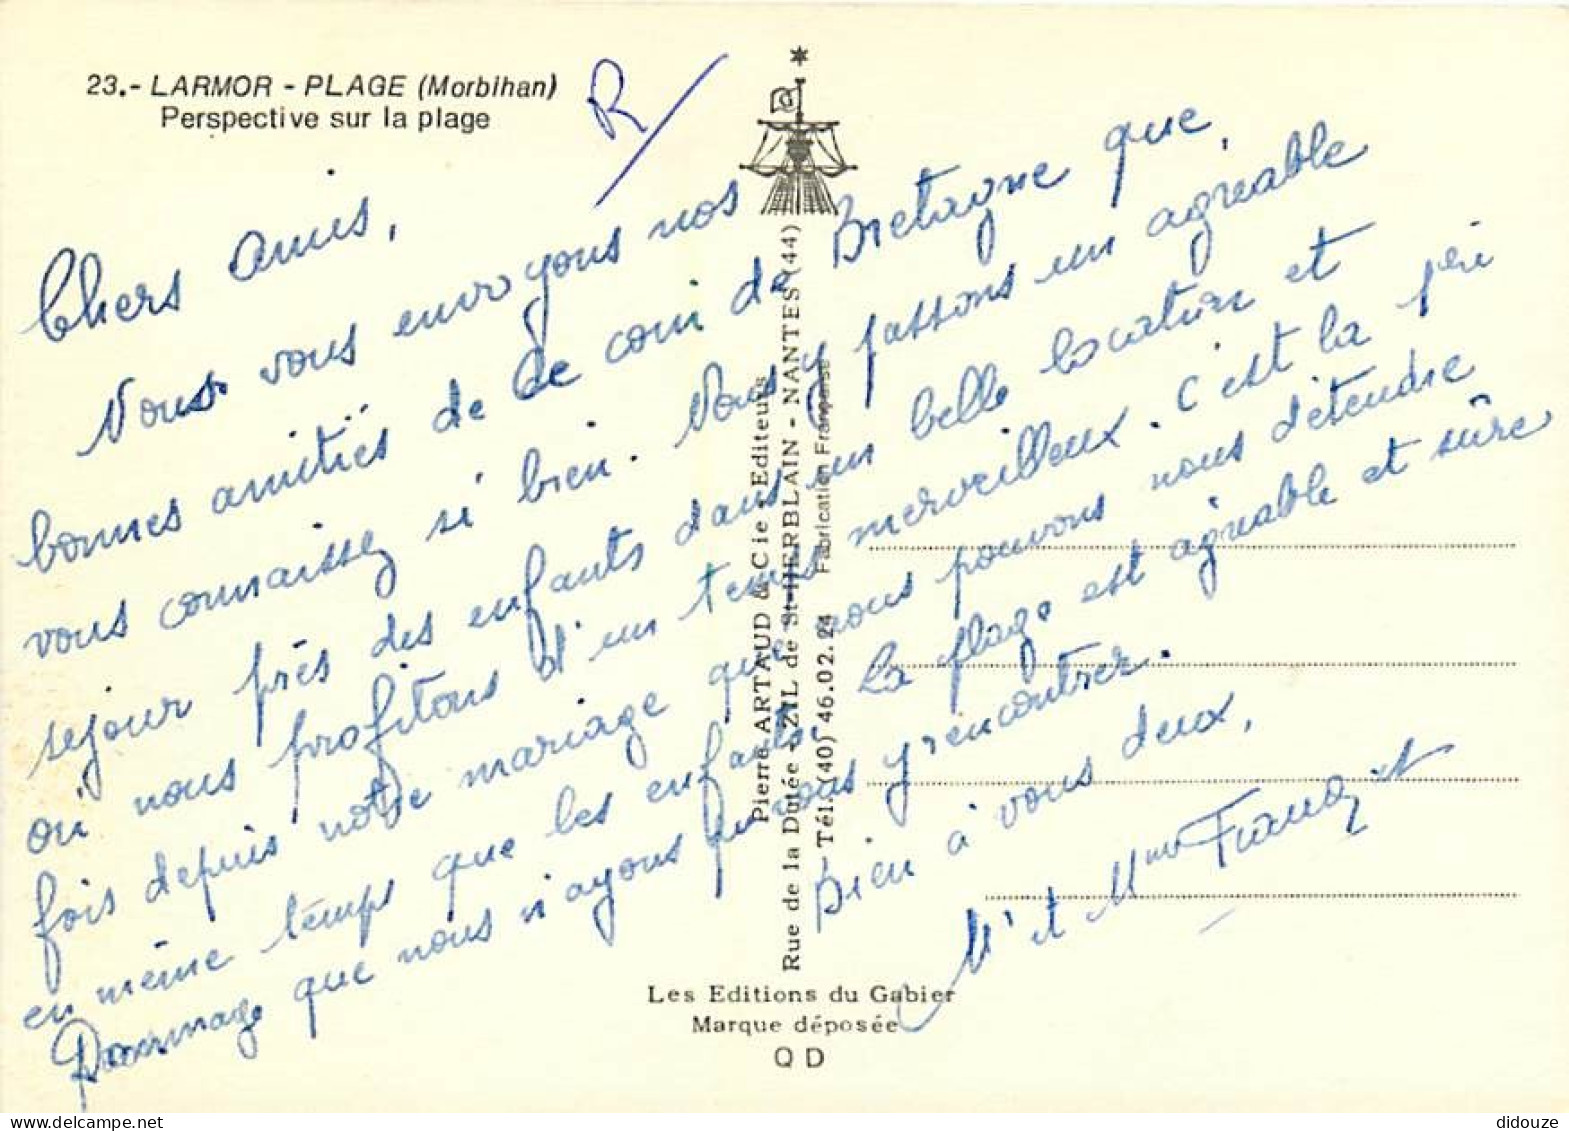 23.- LARMOR - PLAGE (Morbihan)
Perspective sur la plage
R
Chers amis,
Nous vous envoyons nos
bonnes amitiés de ce coin de Bretagne que
vous connaissez si bien. Nous y passons un agréable
séjour près des enfants dans un belle location et
où nous profitons d'un temps merveilleux. C'est la 1ère
fois depuis notre mariage que nous pouvons nous détendre
en même temps que les enfants. La plage est agréable et sûre
Dommage que nous n'ayons pu vous y rencontrer.
Bien à vous deux,
Mr et Mme
Pierre ARTAUD & Cie - Editeurs
Rue de la Dutée - ZIL de St-HERBLAIN - NANTES (44)
Tél. (40) 46.02.24 Fabrication Française
Les Editions du Gabier
Marque déposée
QD
didouze